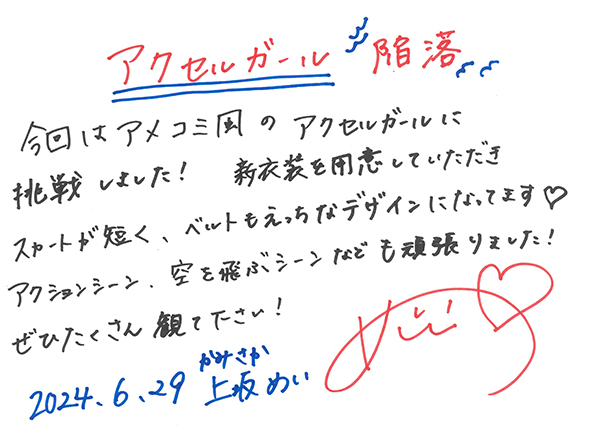 アクセルガール 陥落
今回はアメコミ風のアクセルガールに
挑戦しました！ 新衣装を用意していただき
スカートが短く、ベルトもえっちなデザインになってます♡
アクションシーン、空を飛ぶシーンなども頑張りました！
ぜひたくさん観て下さい！
かみさか
2024.6.29 上坂めい